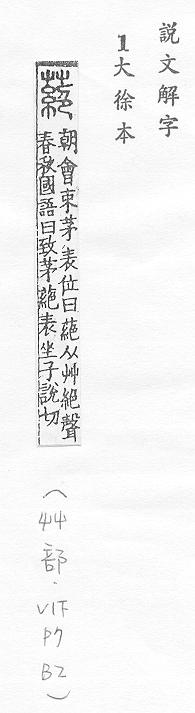 説文解字
1大徐本
蕝
朝會束茅表位曰蕝从艸絕聲
春秋國語曰致茅蕝表坐子說切
(艸部·V1下
P7
B2)